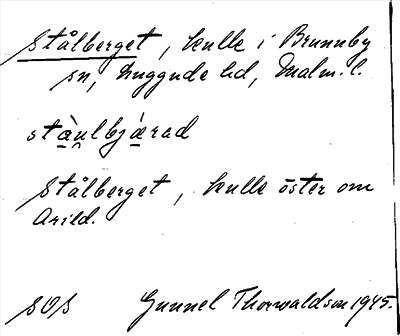 Stålberget, kulle i Brunnby
sn, Luggude hd, Malm. l.
stàu̯lbjærad
Stålberget, kulle öster om
Arild.
SOS Gunnel Thorwaldson 1945.